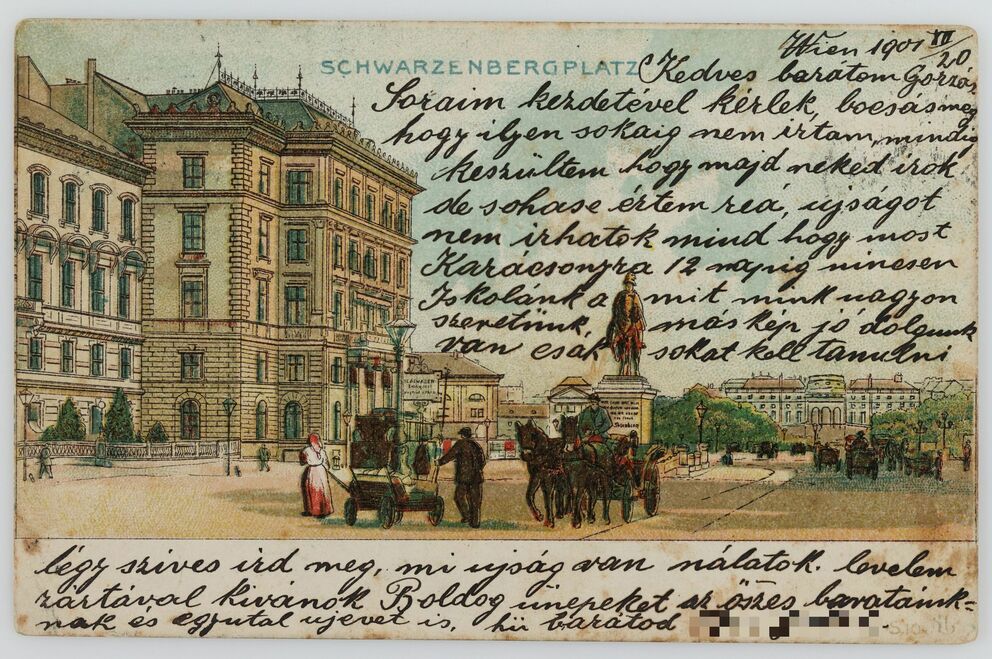 Wien 1901 XII/20
SCHWARZENBERGPLATZ
Kedves barátom
Soraim kezdetével kérlek, bocsás meg
hogy ilyen sokaig nem irtam, mindig
keszültem hogy majd neked irok
de sohase értem reá, ujságot
nem irhatok mind hogy most
Karácsonyra 12 napig nincsen
Iskolánk a mit mink nagyon
szeretünk, máskép jó dolgunk
van csak sokat kell tanulni
légy szives ird meg, mi ujság van nálatok. levelem
zártával kivánok Boldog ünepeket az öszes baratáink=
nak és egyutal ujevet is, hü barátod